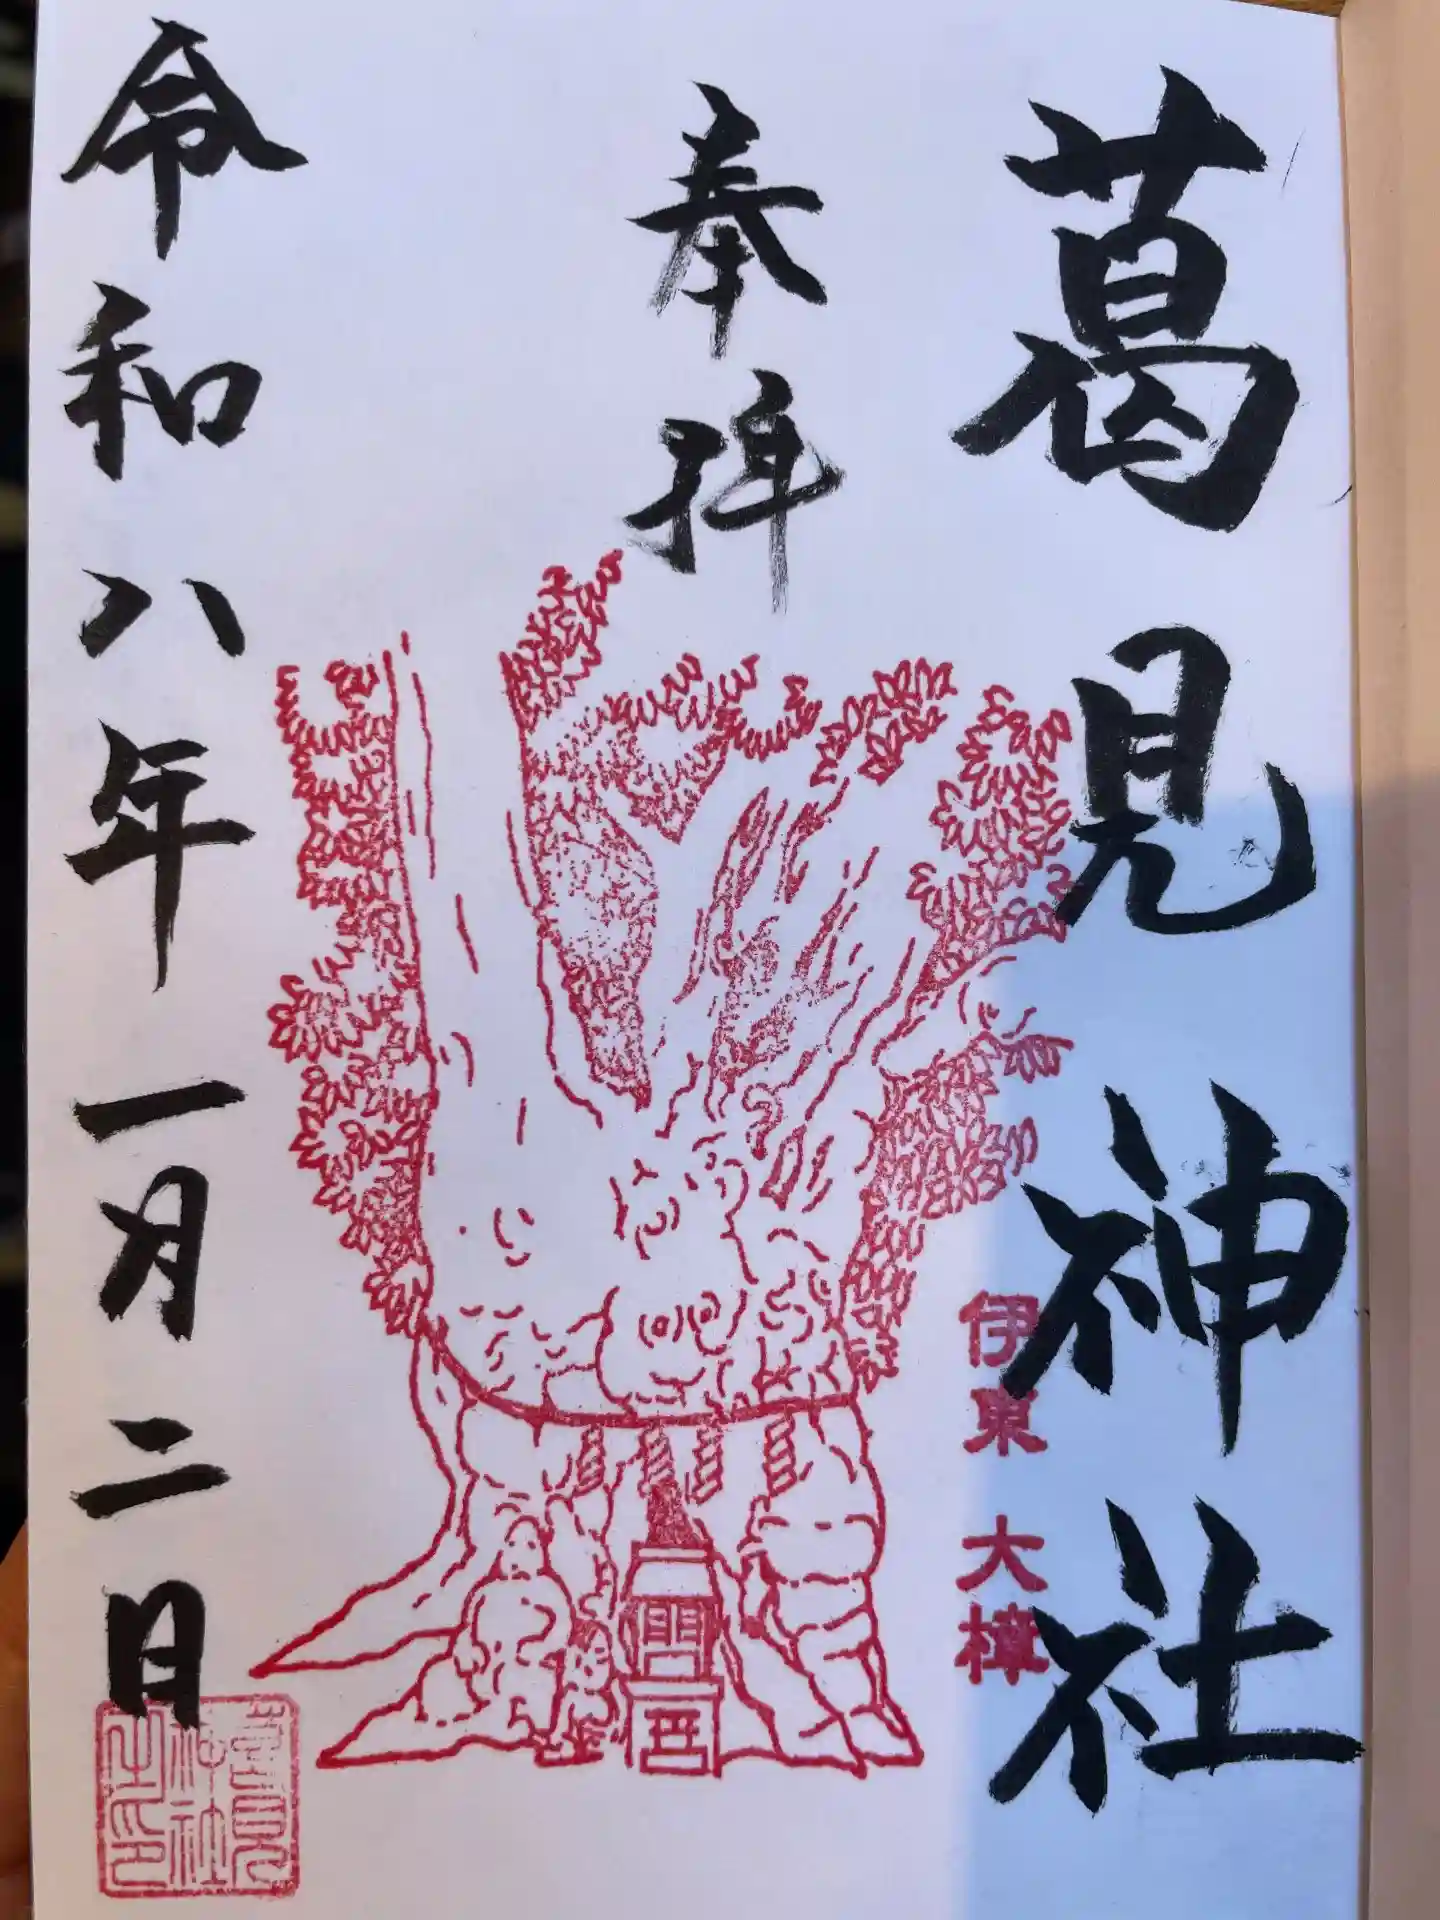 葛見神社
奉拝
伊東 大樟
令和八年一月二日
葛見
神社
之印